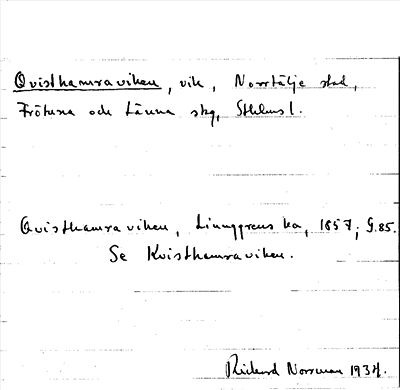 Qvisthamraviken, vik, Norrtälje stad,
Frötuna och Länna skg, Sthlms l.
Qvisthamraviken, Ljunggrens ka, 1857; G.85.
Se Kvisthamraviken.
Rickard Norrman 1934.